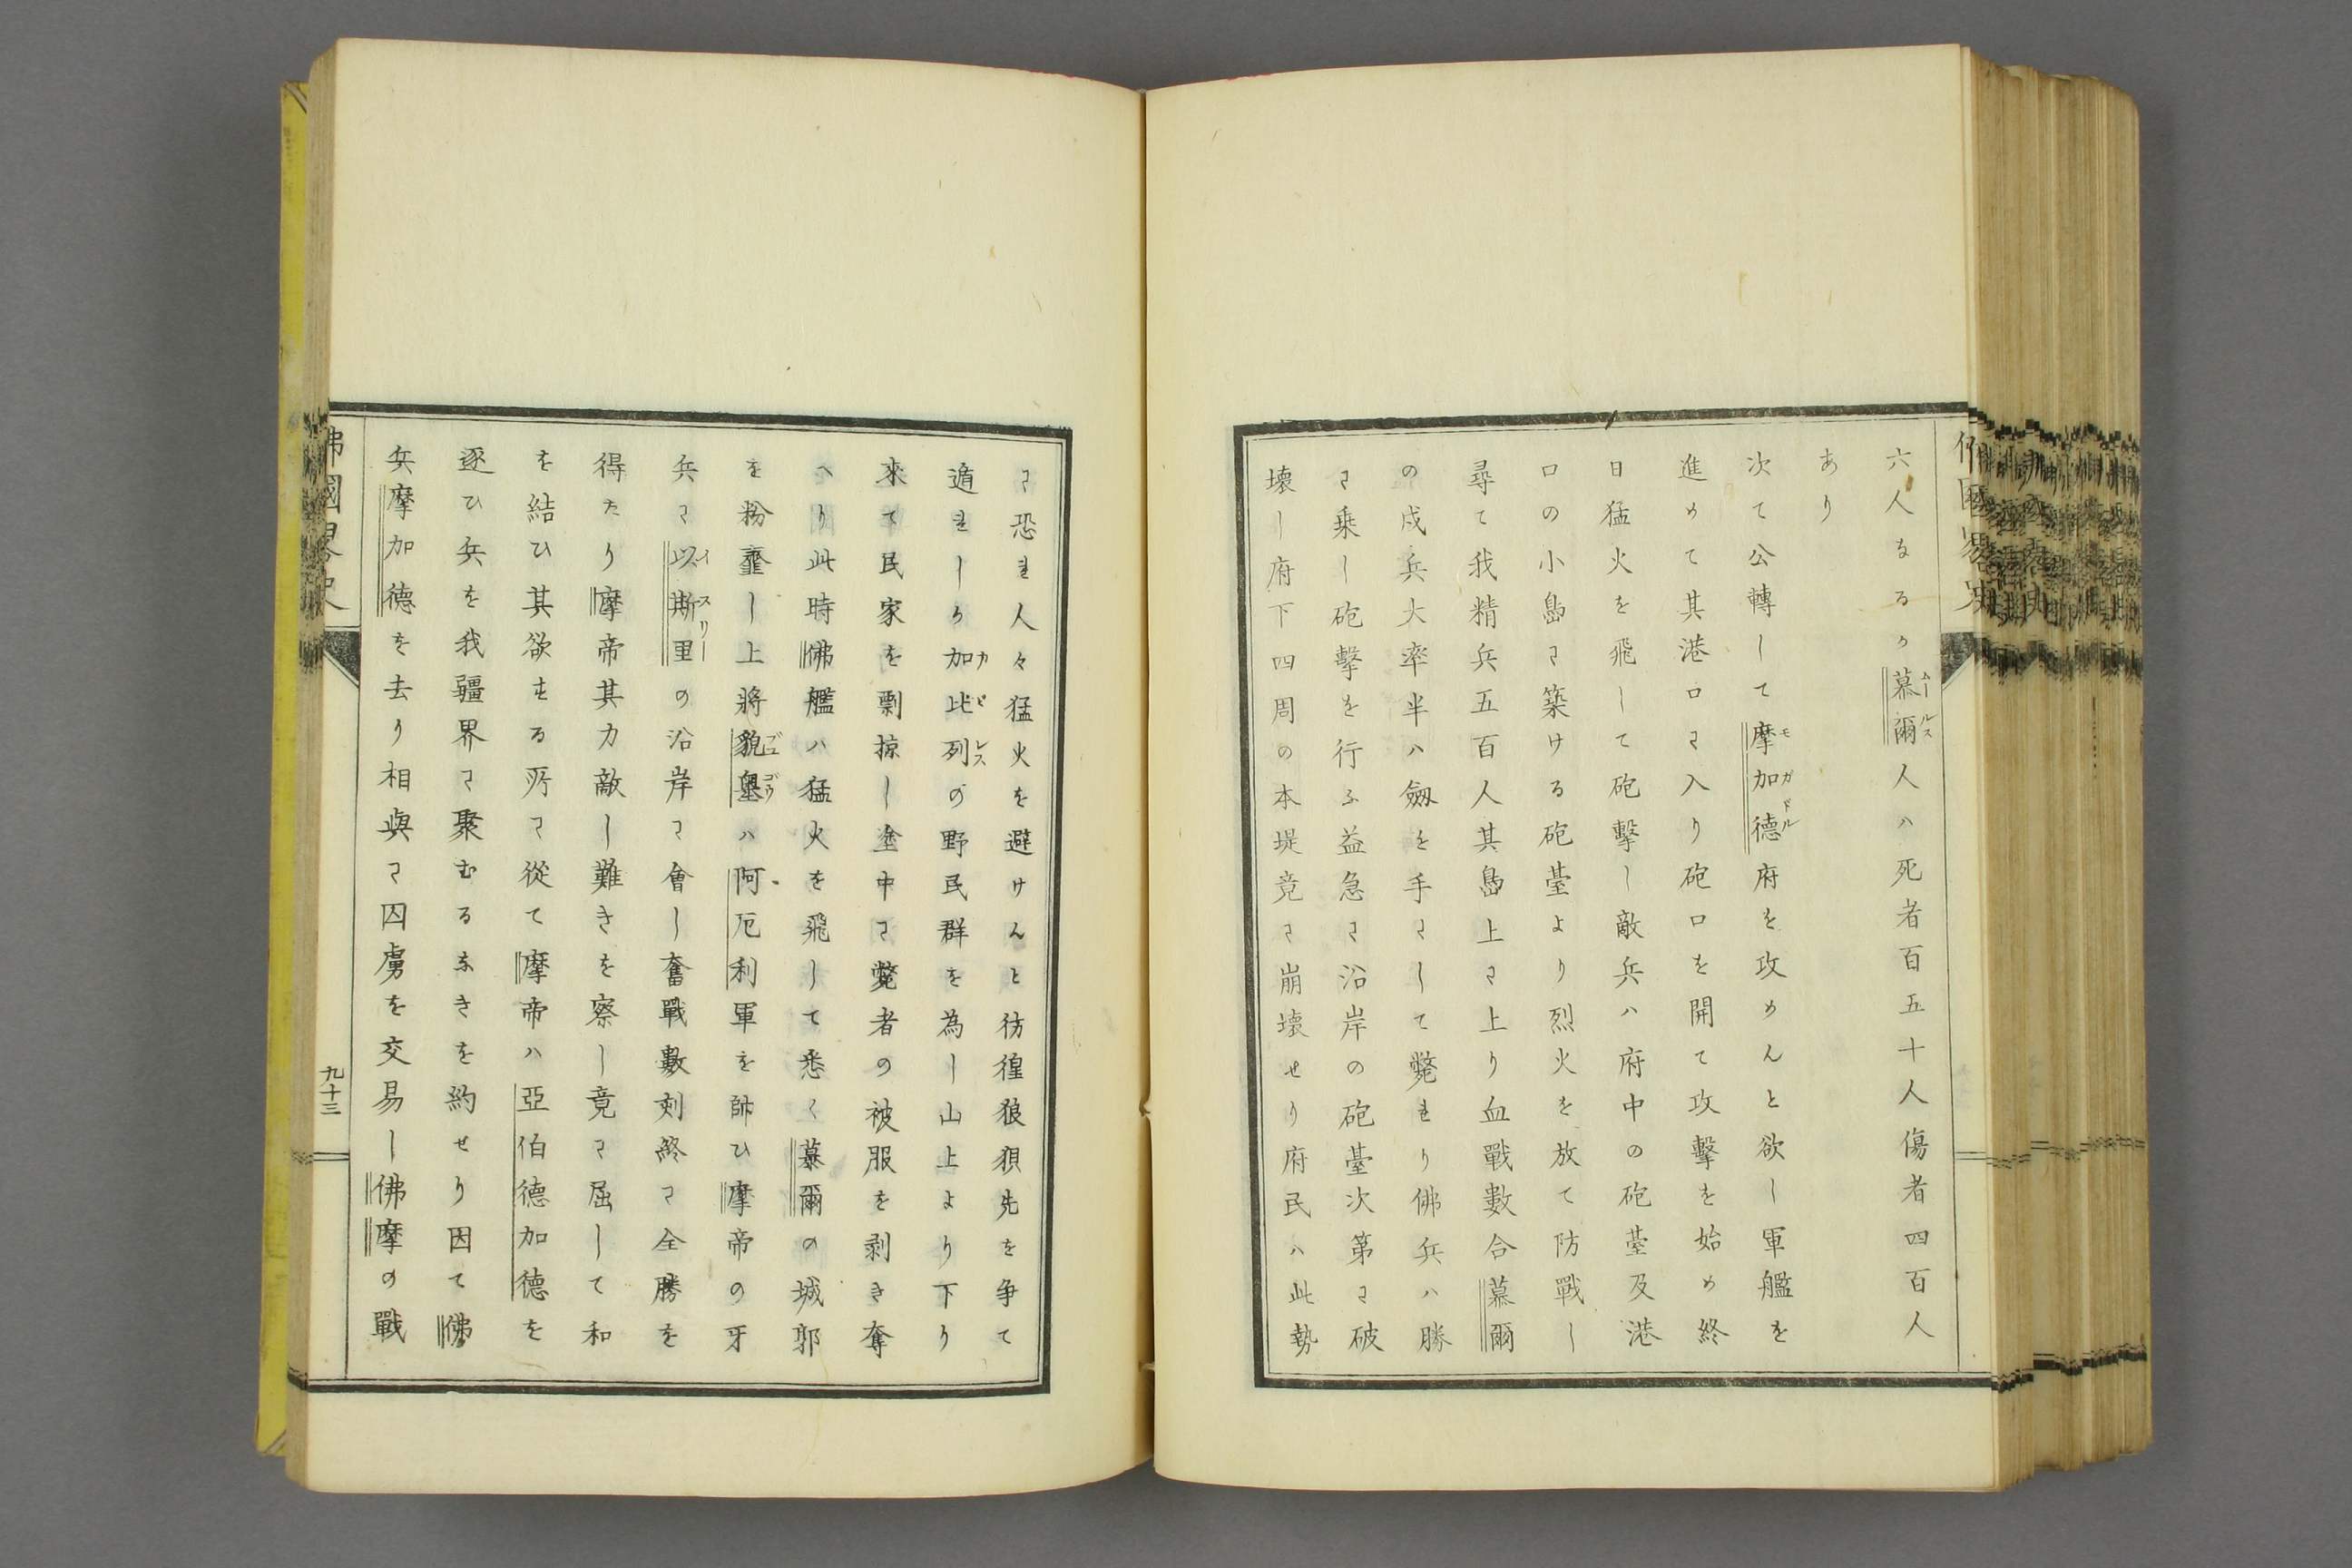 六人なるか慕爾人ハ死者百五十人傷者四百人
ムールス
あり
次て公轉して摩加德府を攻めんと欲し軍艦を
モガドル
進めて其港口に入り砲口を開て攻擊を始め終
日猛火を飛して砲擊し敵兵ハ府中の砲臺及港
口の小島に築ける砲臺より烈火を放て防戰し
尋て我精兵五百人其島上に上り血戰數合慕爾
の戍兵大率半ハ劔を手にして斃れり佛兵ハ勝
に乗し砲擊を行ふ益急に沿岸の砲臺次第に破
壞し府下四周の本堤竟に崩壞せり府民ハ此勢
に恐れ人々猛火を避けんと彷徨狼狽先を争て
遁れしか加比列の野民群を為し山上より下り
カビレス
來て民家を剽掠し塗中に斃者の被服を剥き奪
へり此時佛艦ハ猛火を飛して悉く慕爾の城郭
を粉韲し上將貌墾ハ阿厄利軍を帥ひ摩帝の牙
兵に以斯里の沿岸に會し奮戰數刻終に全勝を
イスリー
得たり摩帝其力敵し難きを察し竟に屈して和
を結ひ其欲する所に從て摩帝ハ亞伯德加德を
逐ひ兵を我疆界に聚むるなきを約せり因て佛
兵摩加德を去り相與に囚虜を交易し佛摩の戰
佛國畧史
九十三